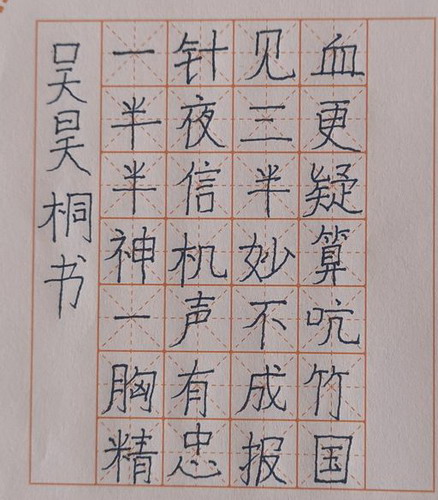 一针见血
半夜三更
半信半疑
神机妙算
一声不吭
胸有成竹
精忠报国
吴昊桐书